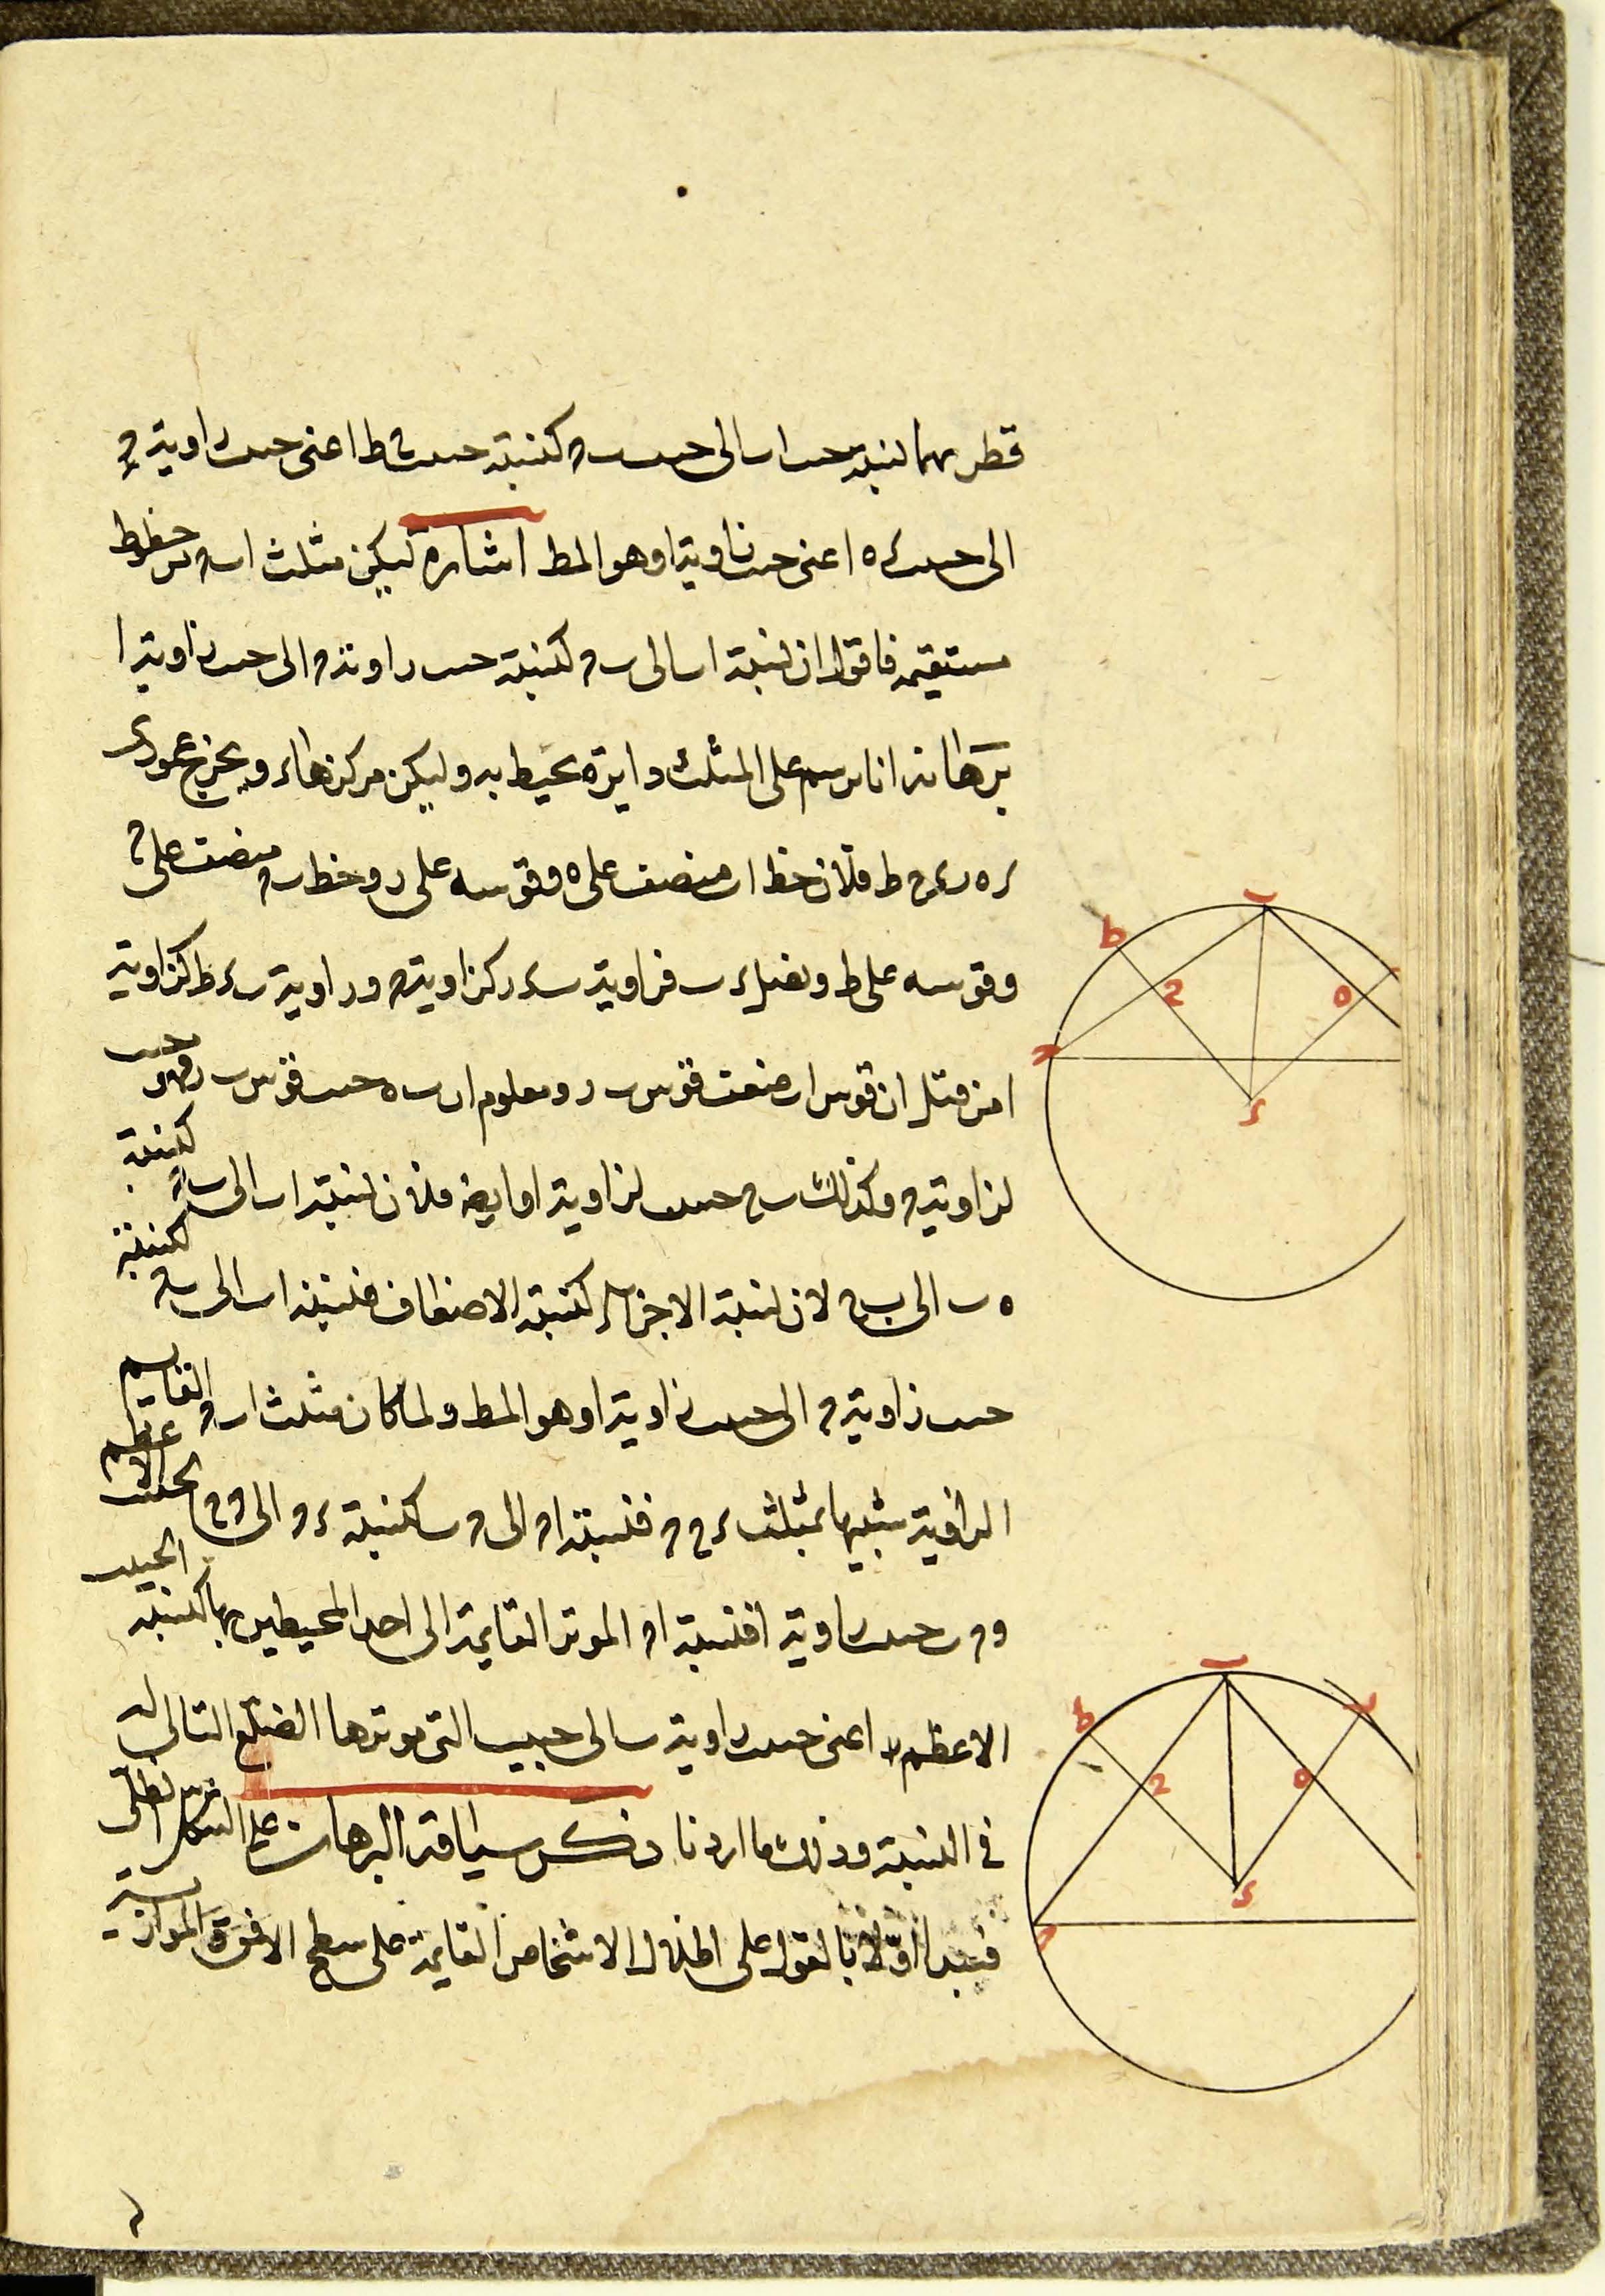 قطريهما لنسبة جيب اب الى جيب ب ح كنسبة جيب ح ط اعنى جيب زاوية ح
الى جيب ء ه اعنى جيب زاوية ا وهو المط اشارة ليكن مثلث اب ح من خطوط
مستقيمه فاقول ان نسبة اب الى ب ح كنسبة جيب زاوية ح الى جيب زاوية ا
برهانه انا نرسم على المثلث دايرة يحيط به وليكن مركزها ء ويخرج عمودى
ء ه ر ء ح ط فلان خط اب منصف على ه وقوسه على ر وخط ب ح منصف على ح
وقوسه على ط ونصل ء ب فزاوية ب ء ر كزاوية ح وزاوية ب ء ط كزاوية
ا من قبل ان قوس اب ضعف قوس ب ر ومعلوم ان ب ه جيب قوس ب ر فهو جيب
لزاوية ح وكذلك ب ح جيب لزاوية ا وايضا فلان نسبة اب الى ب ح كنسبة
ه ب الى ب ح لان نسبة الاجزاء كنسبة الاضعاف فنسبة اب الى ب ح كنسبة
جيب زاوية ح الى جيب زاوية ا وهو المط ولما كان مثلث اب ح القايم
الزاوية شبيها بمثلث ء ح ح فنسبة ا ح الى ح ب كنسبة ء ح الى ح ح الجيب الاعظم
و ح جيب زاوية ا فنسبة ا ح الموتر القايمة الى احد المحيطين بها كنسبة الجيب
الاعظم اعنى جيب زاوية ب الى جيب التى موترها الضلع التالى له
فى النسبة وذلك ما اردنا ذكر سياقة البرهان على الشكل الظلى
فنبدا اولا بالقول على اظلال الاشخاص القايمة على سطح الافق الموازية
ب
ط
ح
ه
ح
ء
ب
ط
ر
ح
ه
ء
ح